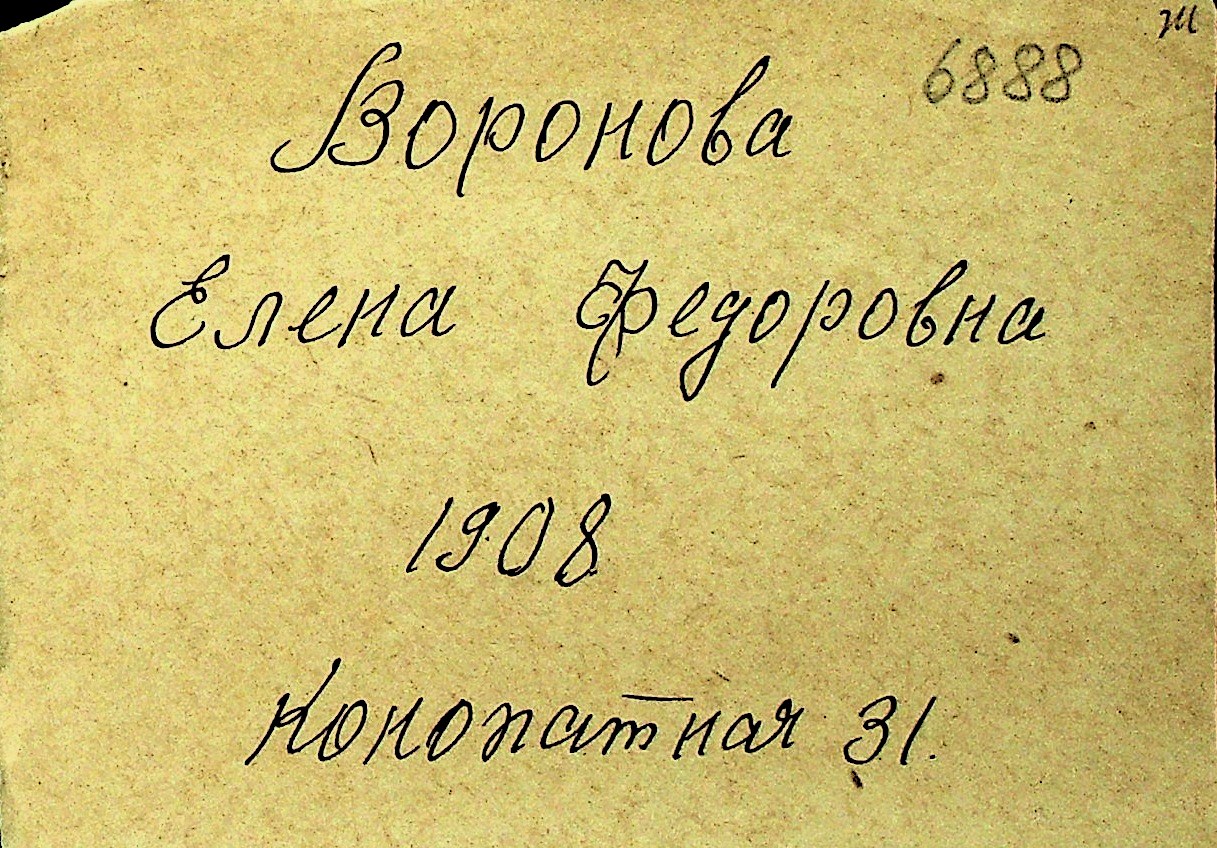 ж
6888
Воронова
Елена Федоровна
1908
Конопатная 31.